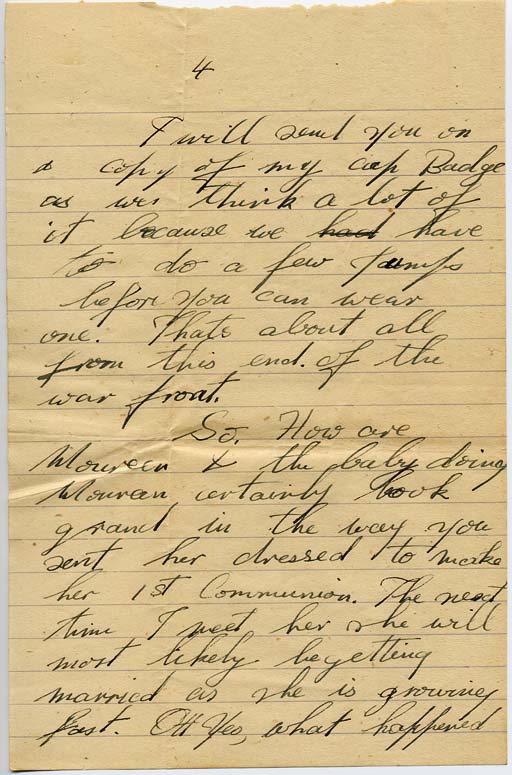 4
I will send you on
a copy of my cap Badge
as we think a lot of
it because we had have
to do a few Jumps
before you can wear
one. Thats about all
from this end. of the
war front.
So. How are
Moureen & the baby doing
Moureen certainly look
grand in the way you
sent her dressed to make
her 1st Communion. The next
time I meet her she will
most likely be getting
married as she is growing
fast. Oh Yes, what happened